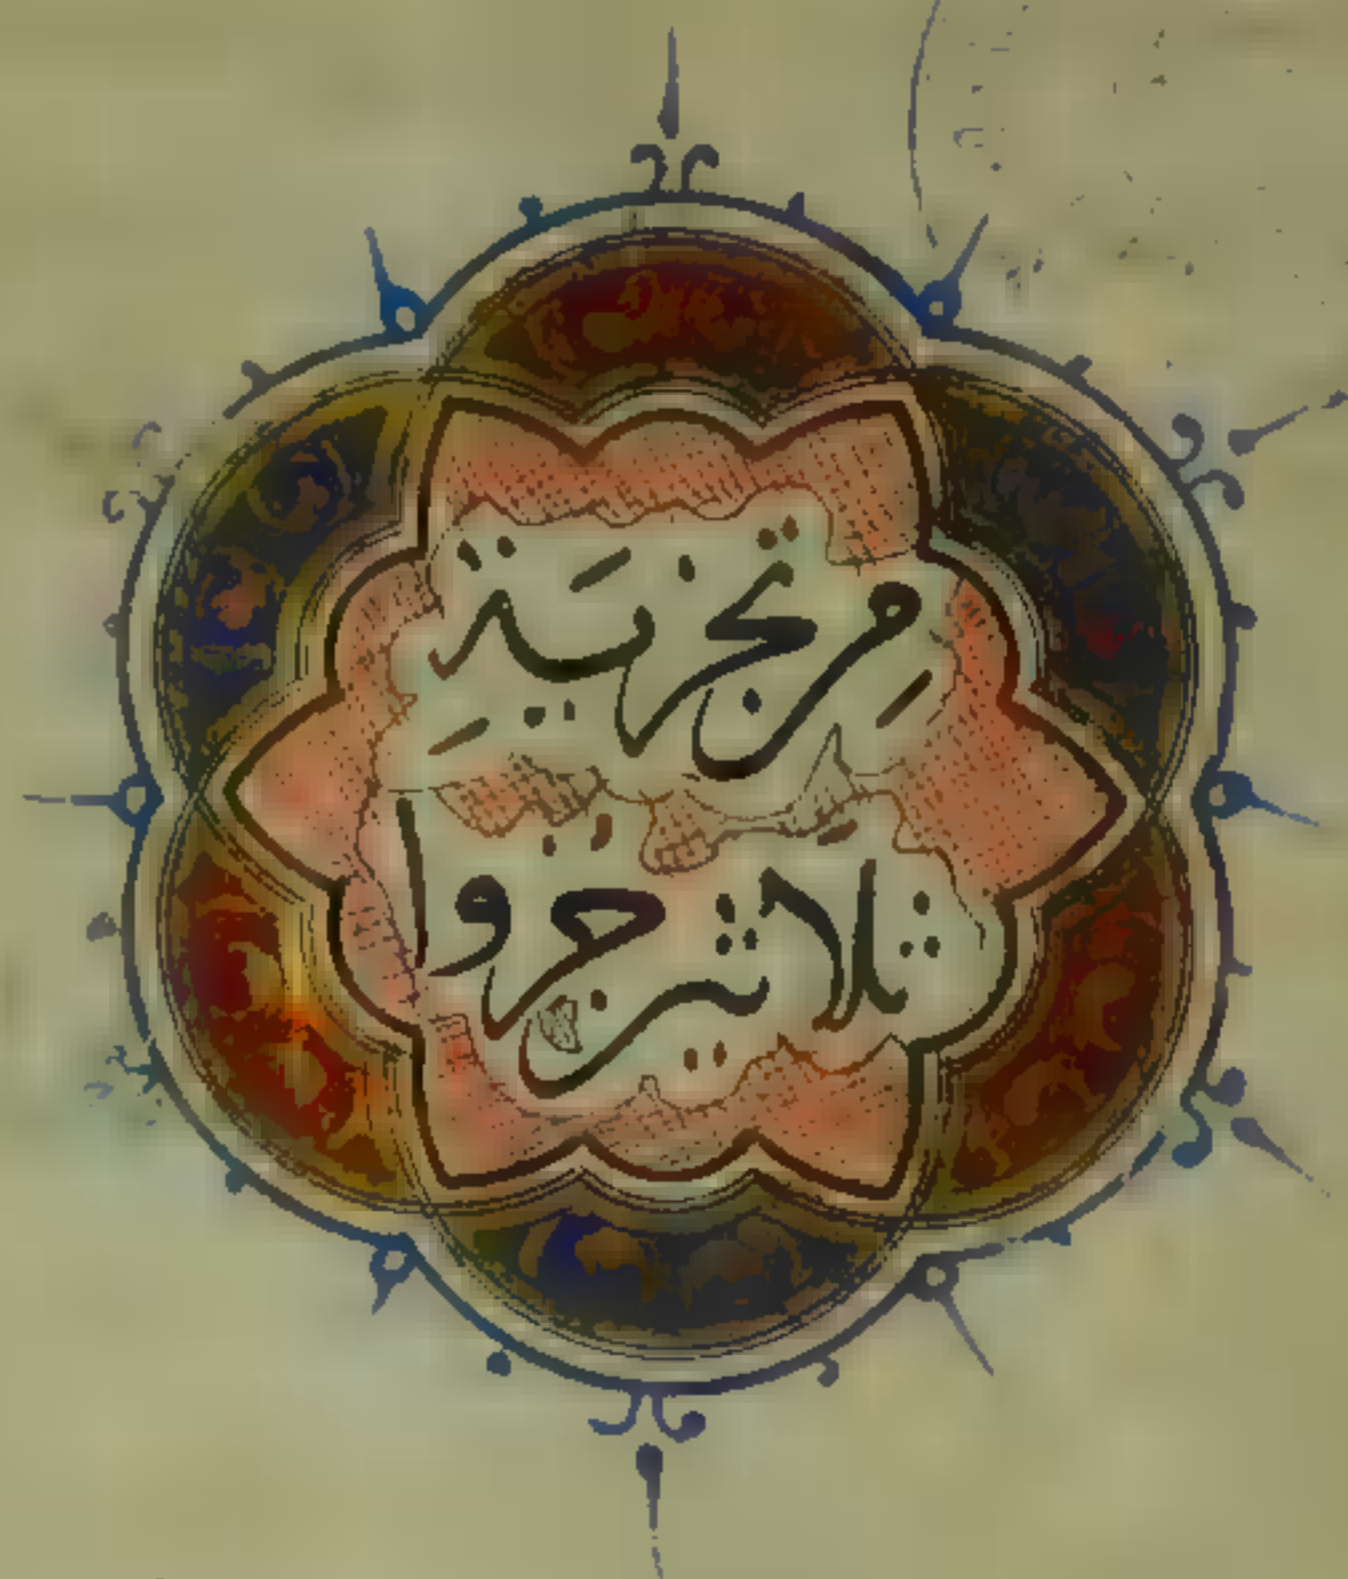 مِنْ تَجْزِيَةِ
ثلاثين جزوا